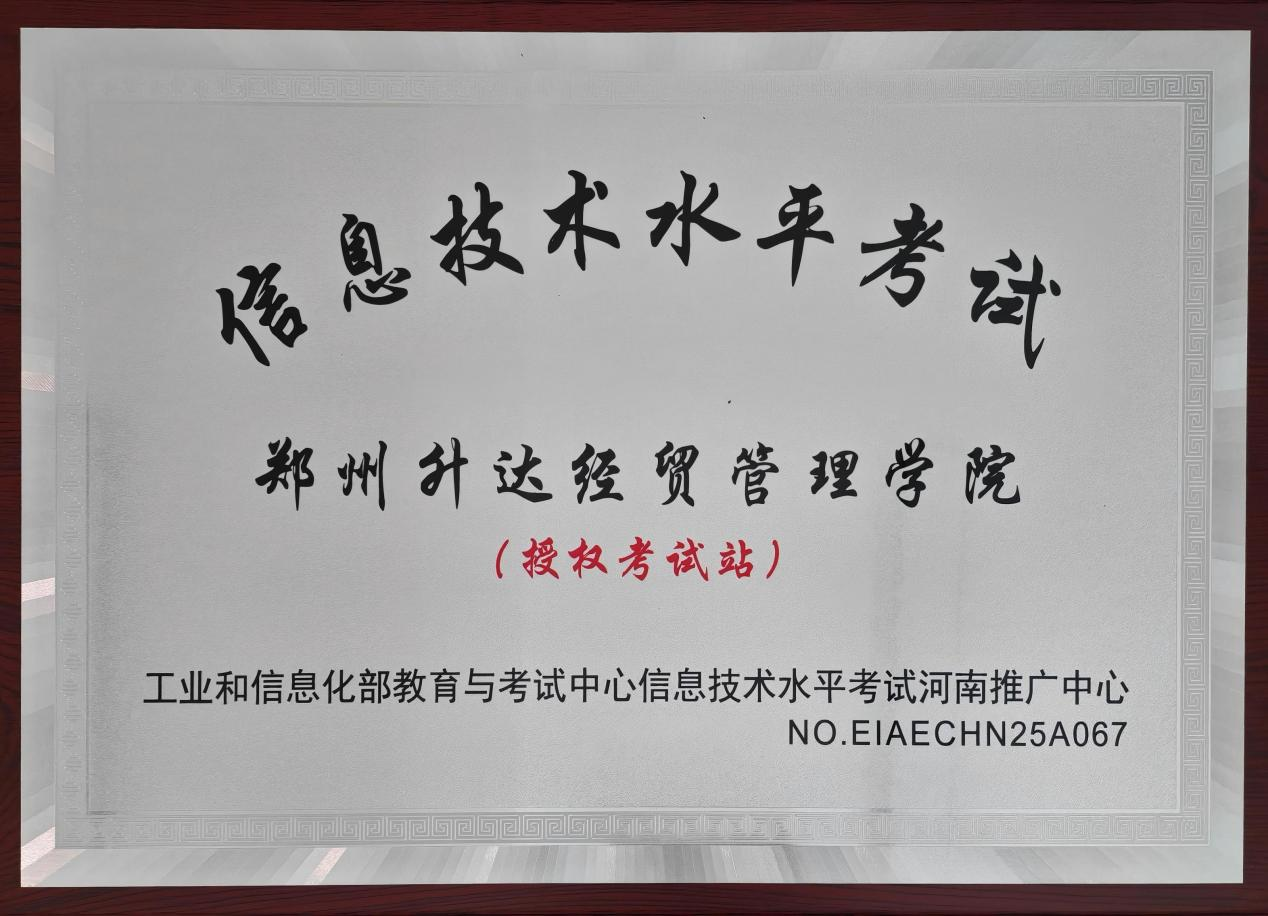 信息技术水平考试
郑州升达经贸管理学院
（授权考试站）
工业和信息化部教育与考试中心信息技术水平考试河南推广中心
NO.EIAECHN25A067